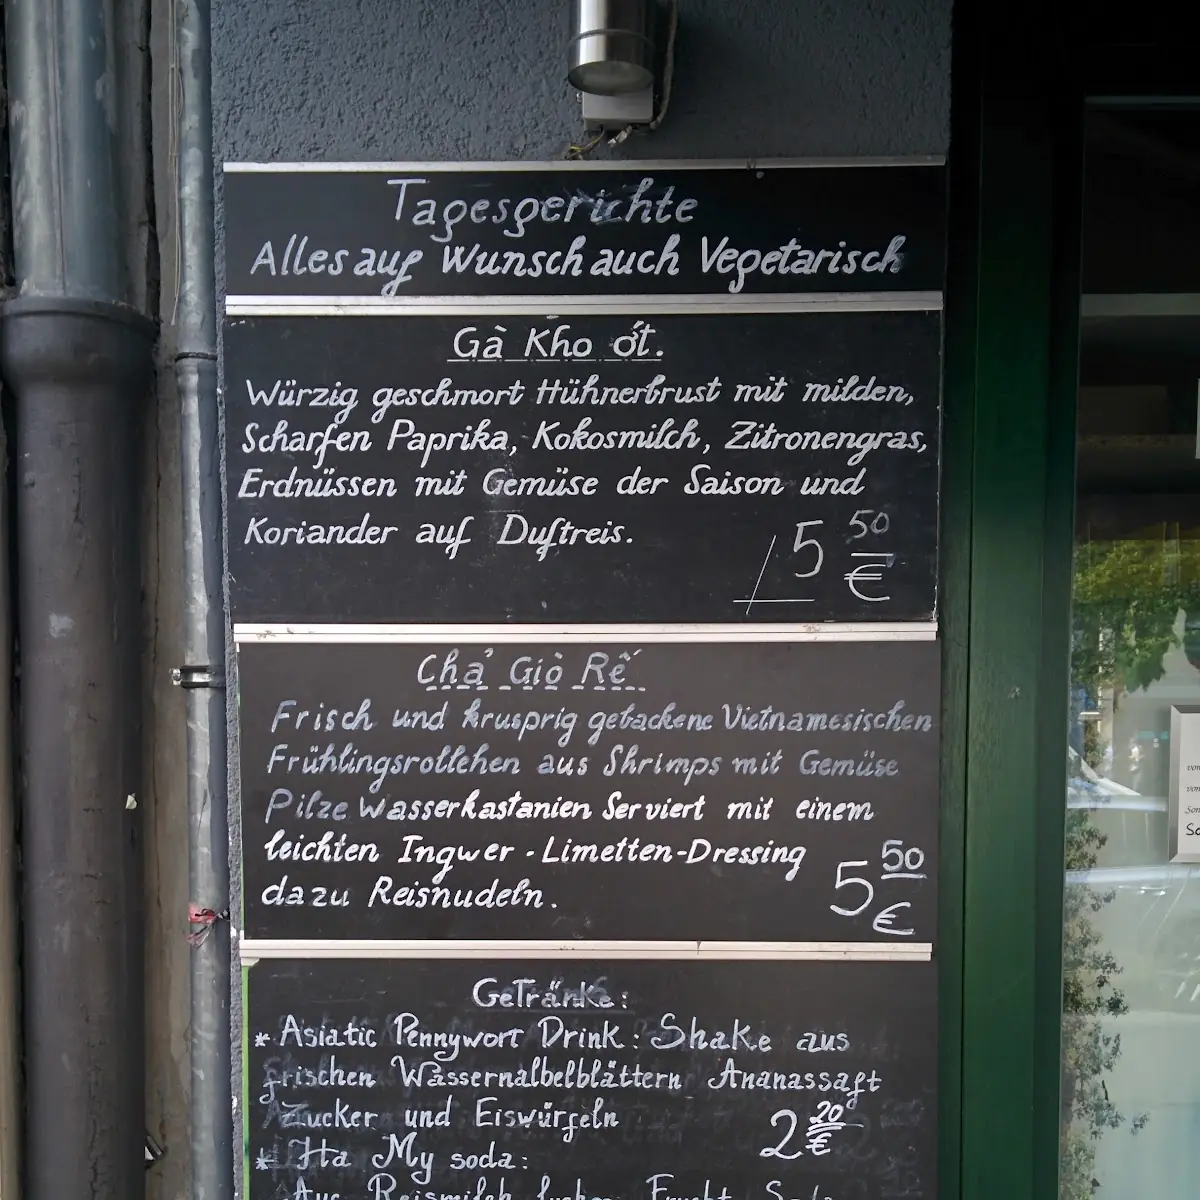 Tagesgerichte
Alles auf Wunsch auch Vegetarisch
Gà Kho ớt.
Würzig geschmort Hühnerbrust mit milden,
Scharfen Paprika, Kokosmilch, Zitronengras,
Erdnüssen mit Gemüse der Saison und
Koriander auf Duftreis.
5 50 €
Chả Giò Rế
Frisch und krusprig gebackene Vietnamesischen
Frühlingsrollehen aus Shrimps mit Gemüse
Pilze Wasserkastanien Serviert mit einem
leichten Ingwer - Limetten-Dressing
dazu Reisnudeln.
5 50 €
Getränke:
* Asiatic Pennywort Drink: Shake aus
frischen Wassernalbelblättern Ananassaft
Zucker und Eiswürfeln
2 20 €
* Ha My soda:
Aus Reismilch